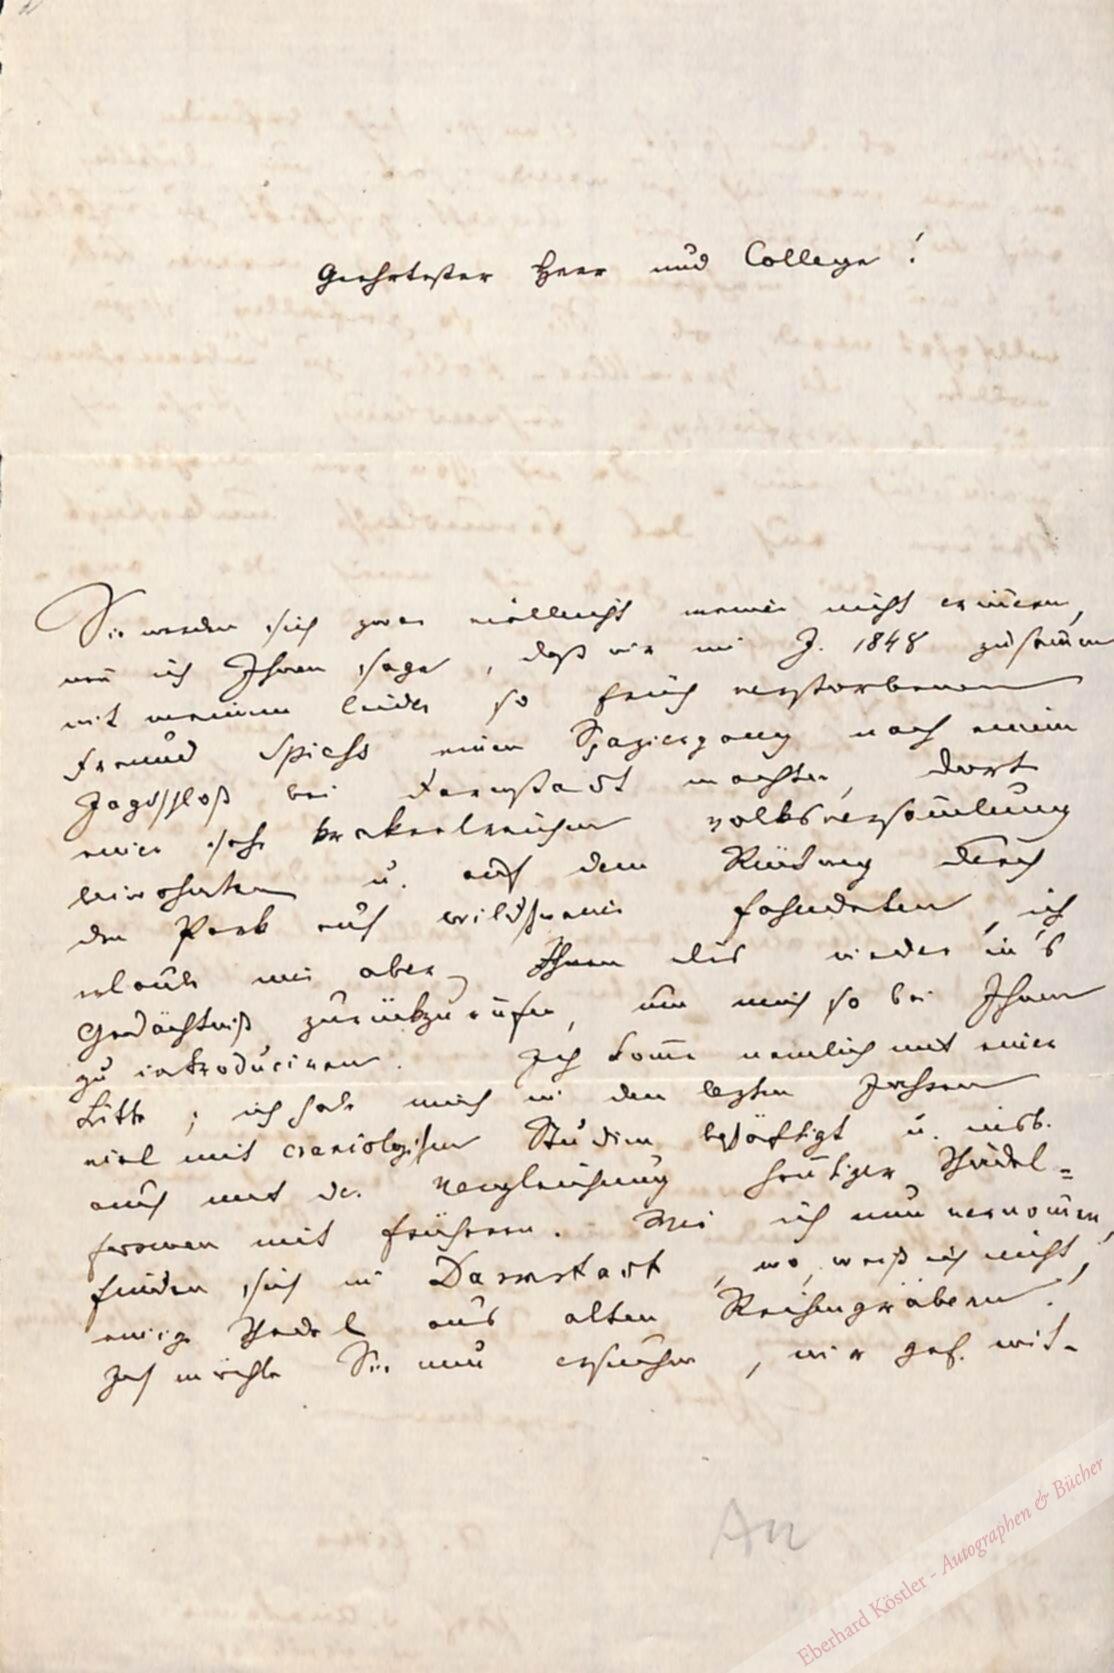 Geehrtester Herr und College!
Sie werden sich zwar vielleicht meiner nicht erinnern,
wen̄ ich Ihnen sage, daß wir im J. 1848 zusam̄en
mit meinem leider so früh verstorbenen
Freund Spiess einen Spaziergang nach einem
Jagdschloß bei Darmstadt machten, dort
einer sehr krakeelreichen Volksversam̄lung
beiwohnten u. auf dem Rückweg durch
den Park auf Wildschweine fahndeten, ich
erlaube mir aber, Ihnen dies wieder in's
Gedächtniß zurückzurufen, um mich so bei Ihnen
zu introduciren. Ich kom̄e nemlich mit einer
Bitte; ich habe mich in den letzten Jahren
viel mit craniologischen Studien beschäftigt u. insb.
auch mit der Vergleichung heutiger Schädel=
formen mit früheren. Wie ich nun vernom̄en,
finden sich in Darmstadt, wo, weiß ich nicht,
einige Schädel aus alten Reihengräbern.
Ich möchte Sie nun ersuchen, mir gef. mit-
An
Eberhard Köstler - Autographen & Bücher